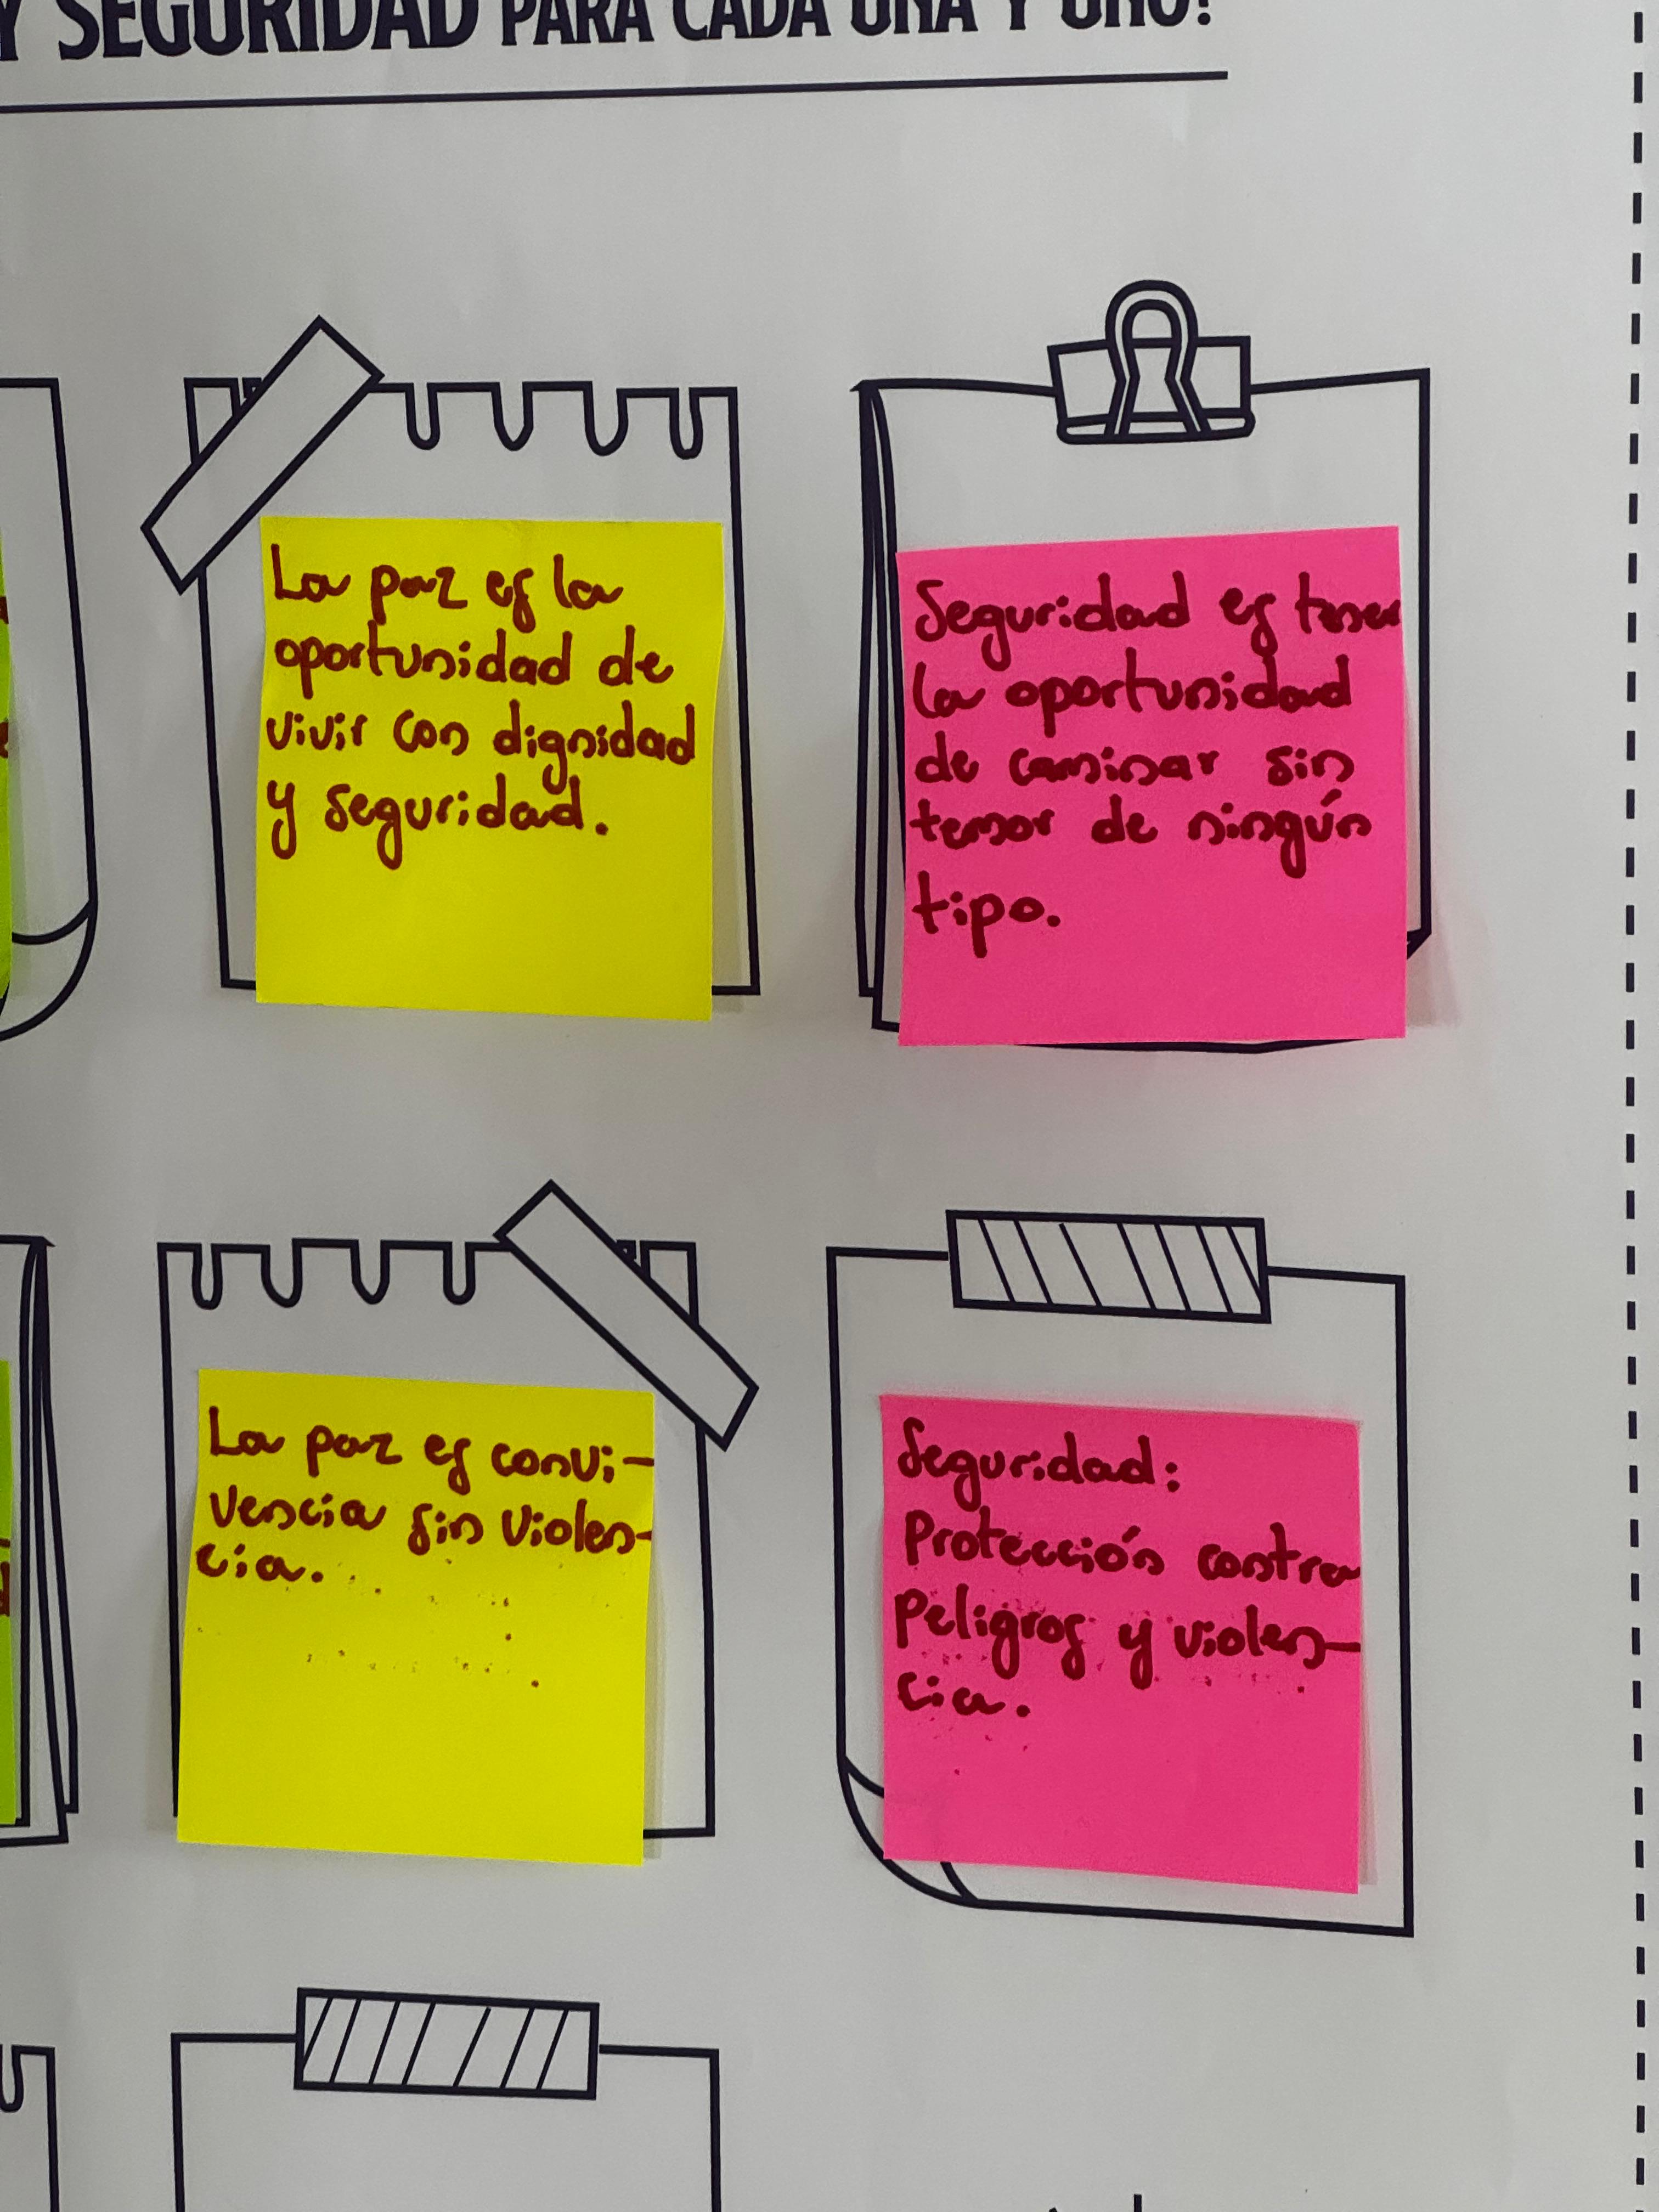 Y SEGURIDAD PARA CADA UNA Y UNO?
La paz es la
oportunidad de
vivir con dignidad
y seguridad.
Seguridad es tener
la oportunidad
de caminar sin
temor de ningún
tipo.
La paz es convi-
vencia sin violen-
cia.
Seguridad:
Protección contra
Peligros y violen-
cia.